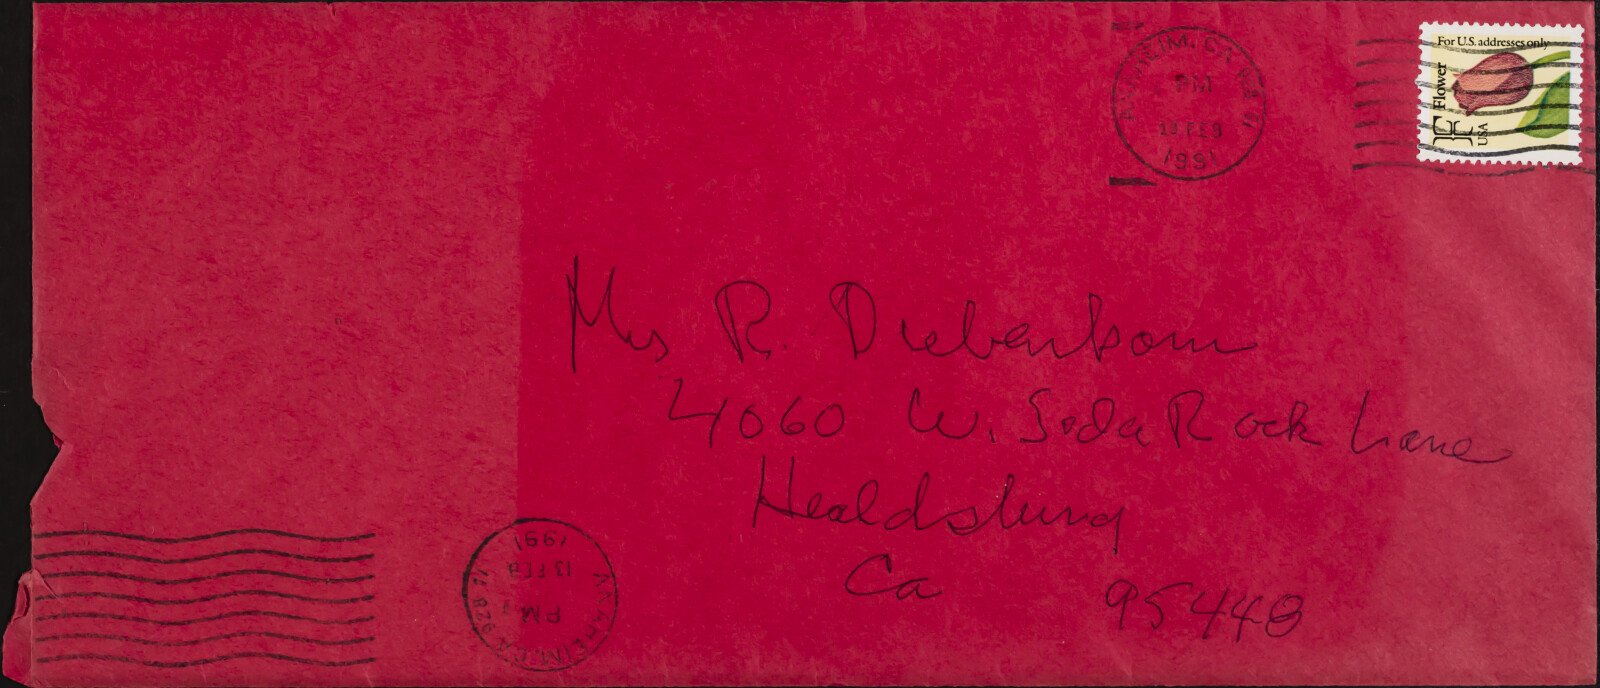 ANAHEIM, CA
PM
13 FEB
1991
For U.S. addresses only
Flower
USA
Mrs R. Diebenkorn
4060 W. Soda Rock Lane
Healdsburg
Ca 95448
ANAHEIM, CA
PM
13 FEB
1991